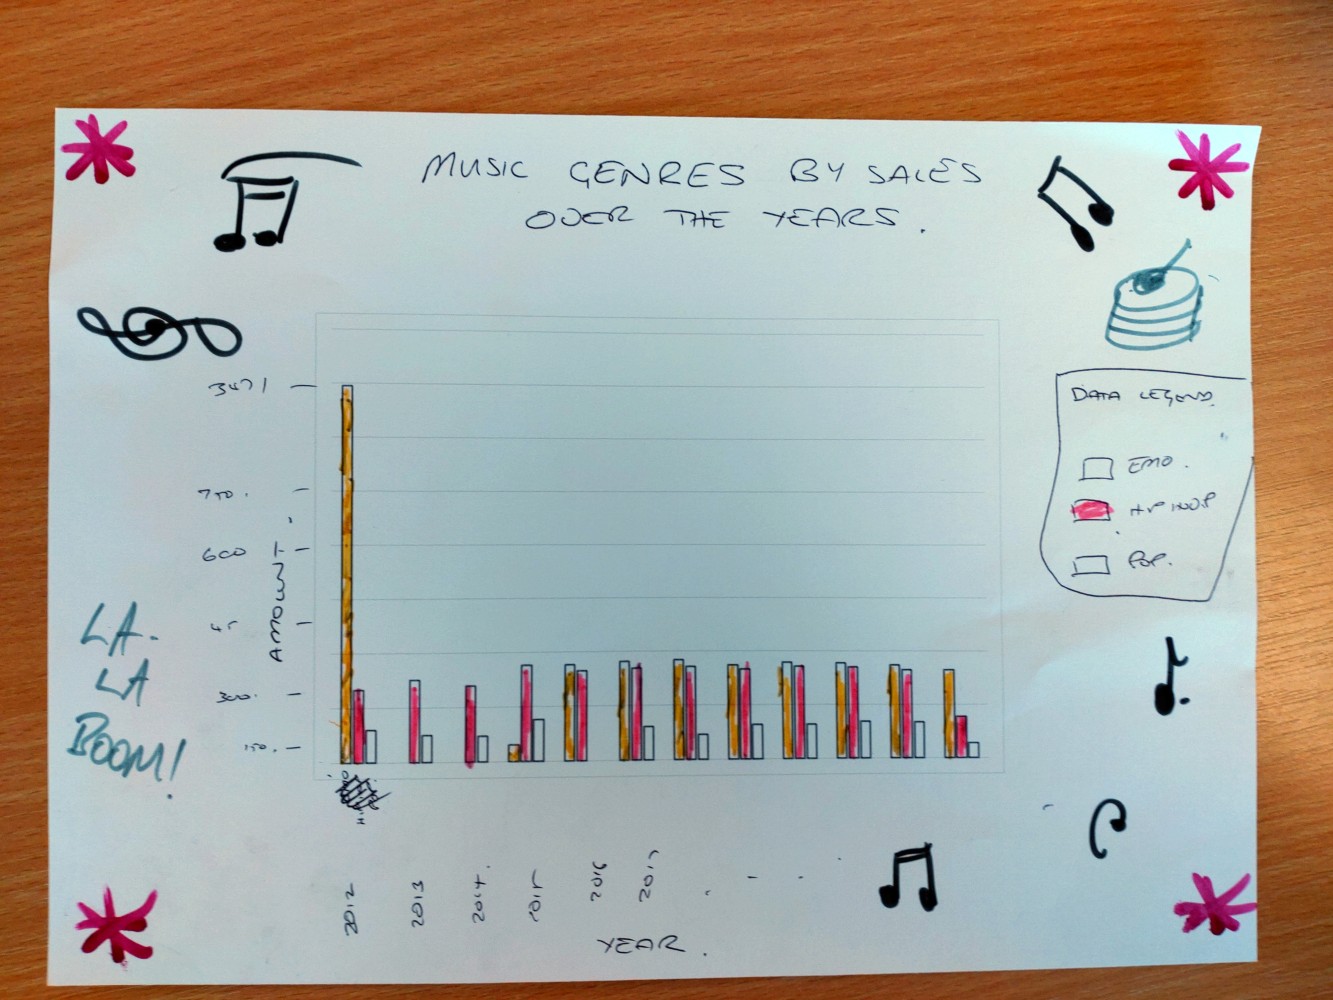 MUSIC GENRES BY SALES
OVER THE YEARS.
3471
750.
600
45
300.
150.
AMOUNT.
LA.
LA
BOOM!
DATA LEGEND.
EMO.
HIP HOP
POP.
2012
2013
2014.
2015
2016
2017
YEAR.